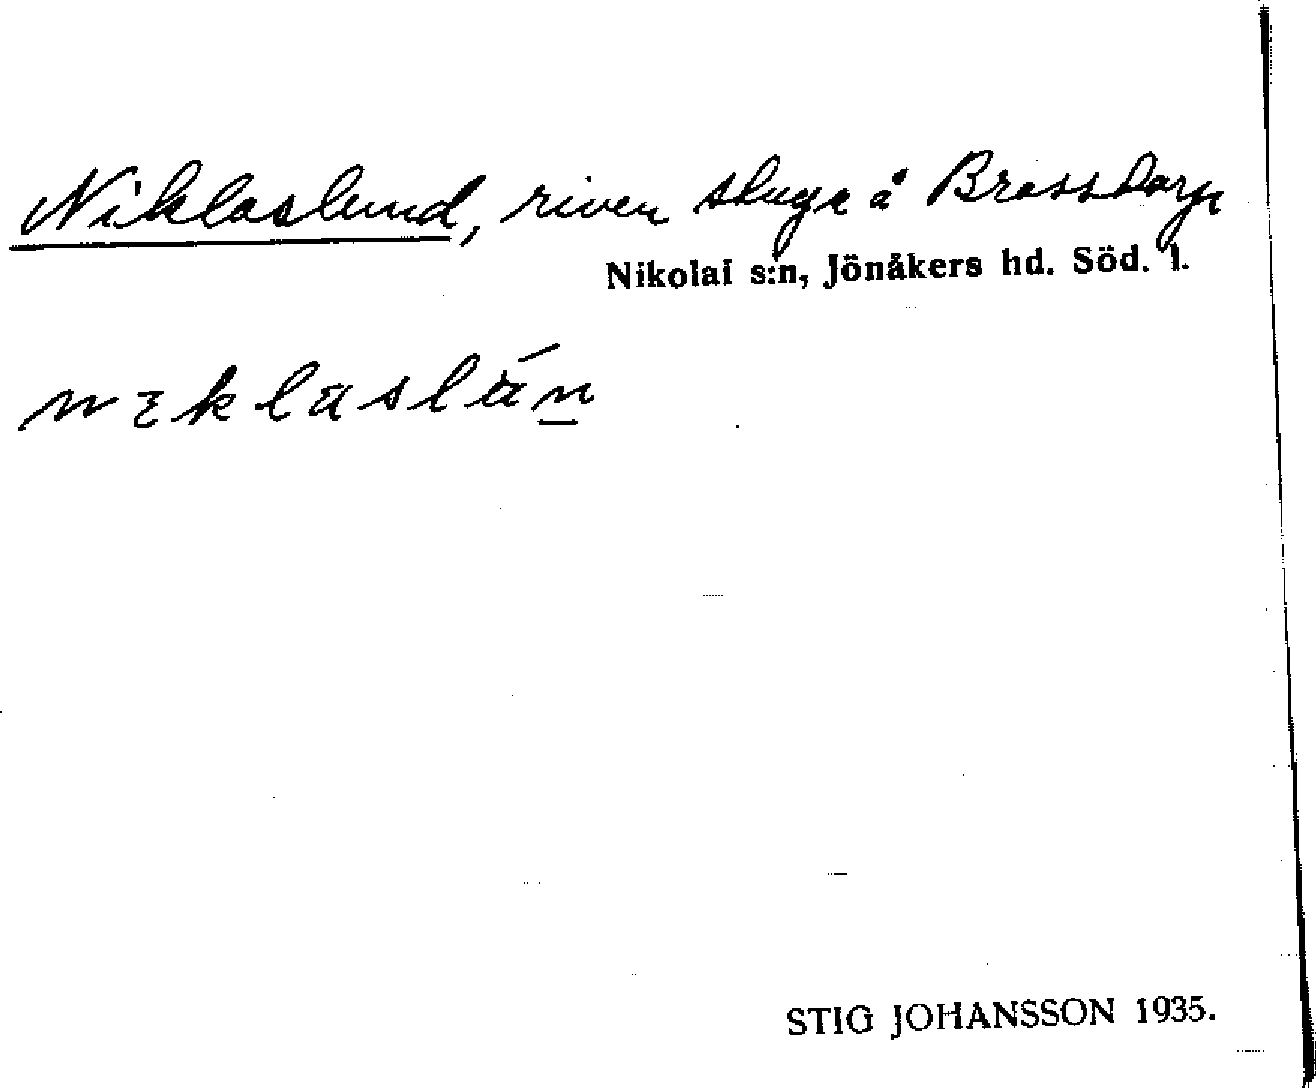 Niklaslund, riven stuga å Brossdorp
Nikolai s:n, Jönåkers hd. Söd. l.
nɛklaslun
STIG JOHANSSON 1935.